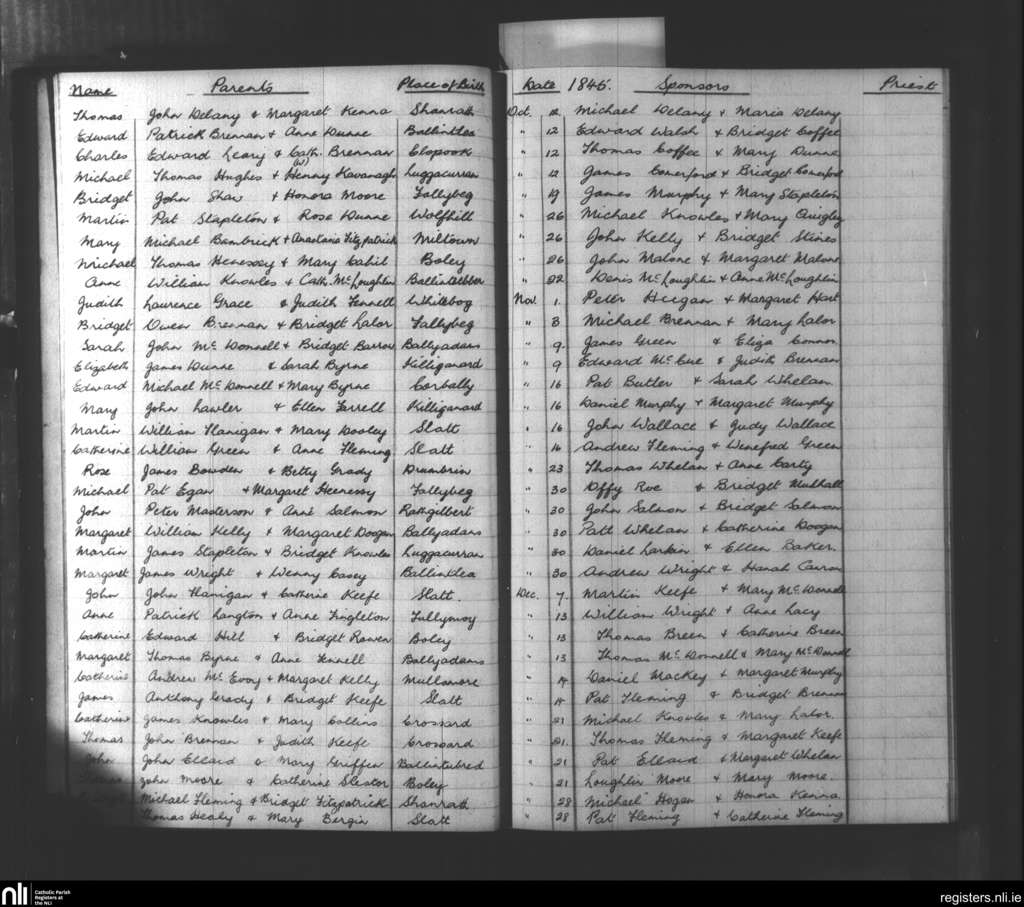 Name Parents Place of Birth Date 1845. Sponsors Priest
Thomas John Delany & Margaret Kenna Shanrath Oct. 12 Michael Delany & Maria Delany
Edward Patrick Brennan & Anne Dunne Ballintlea " 12 Edward Walsh & Bridget Coffee
Charles Edward Leary & Cath. Brennan Clopook " 12 Thomas Coffee & Mary Dunne
Michael Thomas Hughes & (W) Henny Kavanagh Luggacurran " 12 James Comerford & Bridget Comerford
Bridget John Shaw & Honora Moore Tallybeg " 19 James Murphy & Mary Stapleton
Martin Pat Stapleton & Rose Dunne Wolfhill " 26 Michael Knowles & Mary Quigley
Mary Michael Bambrick & Anastasia Fitzpatrick Miltown " 26 John Kelly & Bridget Stines
Michael Thomas Henessy & Mary Cahil Boley " 26 John Malone & Margaret Malone
Anne William Knowles & Cath. McLoughlin Ballintubber " 22 Denis McLoughlin & Anne McLoughlin
Judith Laurence Grace & Judith Fennell Whitebog Nov. 1. Peter Hugan & Margaret Hart
Bridget Owen Brennan & Bridget Lalor Tallybeg " 3 Michael Brennan & Mary Lalor
Sarah John McDonnell & Bridget Barron Ballyadams " 9. James Green & Eliza Connor
Elizabeth James Dunne & Sarah Byrne Killiganard " 9 Edward McCue & Judith Brennan
Edward Michael McDonnell & Mary Byrne Corbally " 16 Pat Butler & Sarah Whelan
Mary John Lawler & Ellen Farrell Killiganard " 16 Daniel Murphy & Margaret Murphy
Martin William Flanigan & Mary Dooley Slatt " 16 John Wallace & Judy Wallace
Catherine William Green & Anne Fleming Slatt " 16 Andrew Fleming & Winefred Green
Rose James Bowden & Betty Grady Drumbrin " 23 Thomas Whelan & Anne Carty
Michael Pat Egan & Margaret Heenessy Tallybeg " 30 Offy Roe & Bridget Mulhall
John Peter Masterson & Anne Salmon Rathgilbert " 30 John Salmon & Bridget Salmon
Margaret William Kelly & Margaret Doogan Ballyadams " 30 Patt Whelan & Catherine Doogan
Martin James Stapleton & Bridget Knowles Luggacurran " 30 Daniel Larkin & Ellen Baker.
Margaret James Wright & Wenny Casey Ballintlea " 30 Andrew Wright & Hanah Curran
John John Flanigan & Catherine Keefe Slatt. Dec. 7. Martin Keefe & Mary McDonnell
Anne Patrick Langton & Anne Tingleton Tullymoy " 13 William Wright & Anne Lacy
Catherine Edward Hill & Bridget Rowen Boley " 13 Thomas Breen & Catherine Breen
Margaret Thomas Byrne & Anne Fennell Ballyadams " 13 Thomas McDonnell & Mary McDonnell
Catherine Andrew McEvoy & Margaret Kelly Mullamore " 14 Daniel Mackey & Margaret Murphy
James Anthony Grady & Bridget Keefe Slatt " 14 Pat Fleming & Bridget Brennan
Catherine James Knowles & Mary Collins Crossard " 21 Michael Knowles & Mary Lalor.
Thomas John Brennan & Judith Keefe Crossard " 21. Thomas Fleming & Margaret Keefe
John John Ellaid & Mary Griffen Ballintubred " 21 Pat Ellaid & Margaret Whelan
John Moore & Catherine Sleator Boley " 21 Loughlin Moore & Mary Moore.
Michael Fleming & Bridget Fitzpatrick Shanrath " 28 Michael Hogan & Honora Kenna
Thomas Healy & Mary Bergin Slatt " 28 Pat Fleming & Catherine Fleming
nli Catholic Parish Registers at the NLI registers.nli.ie